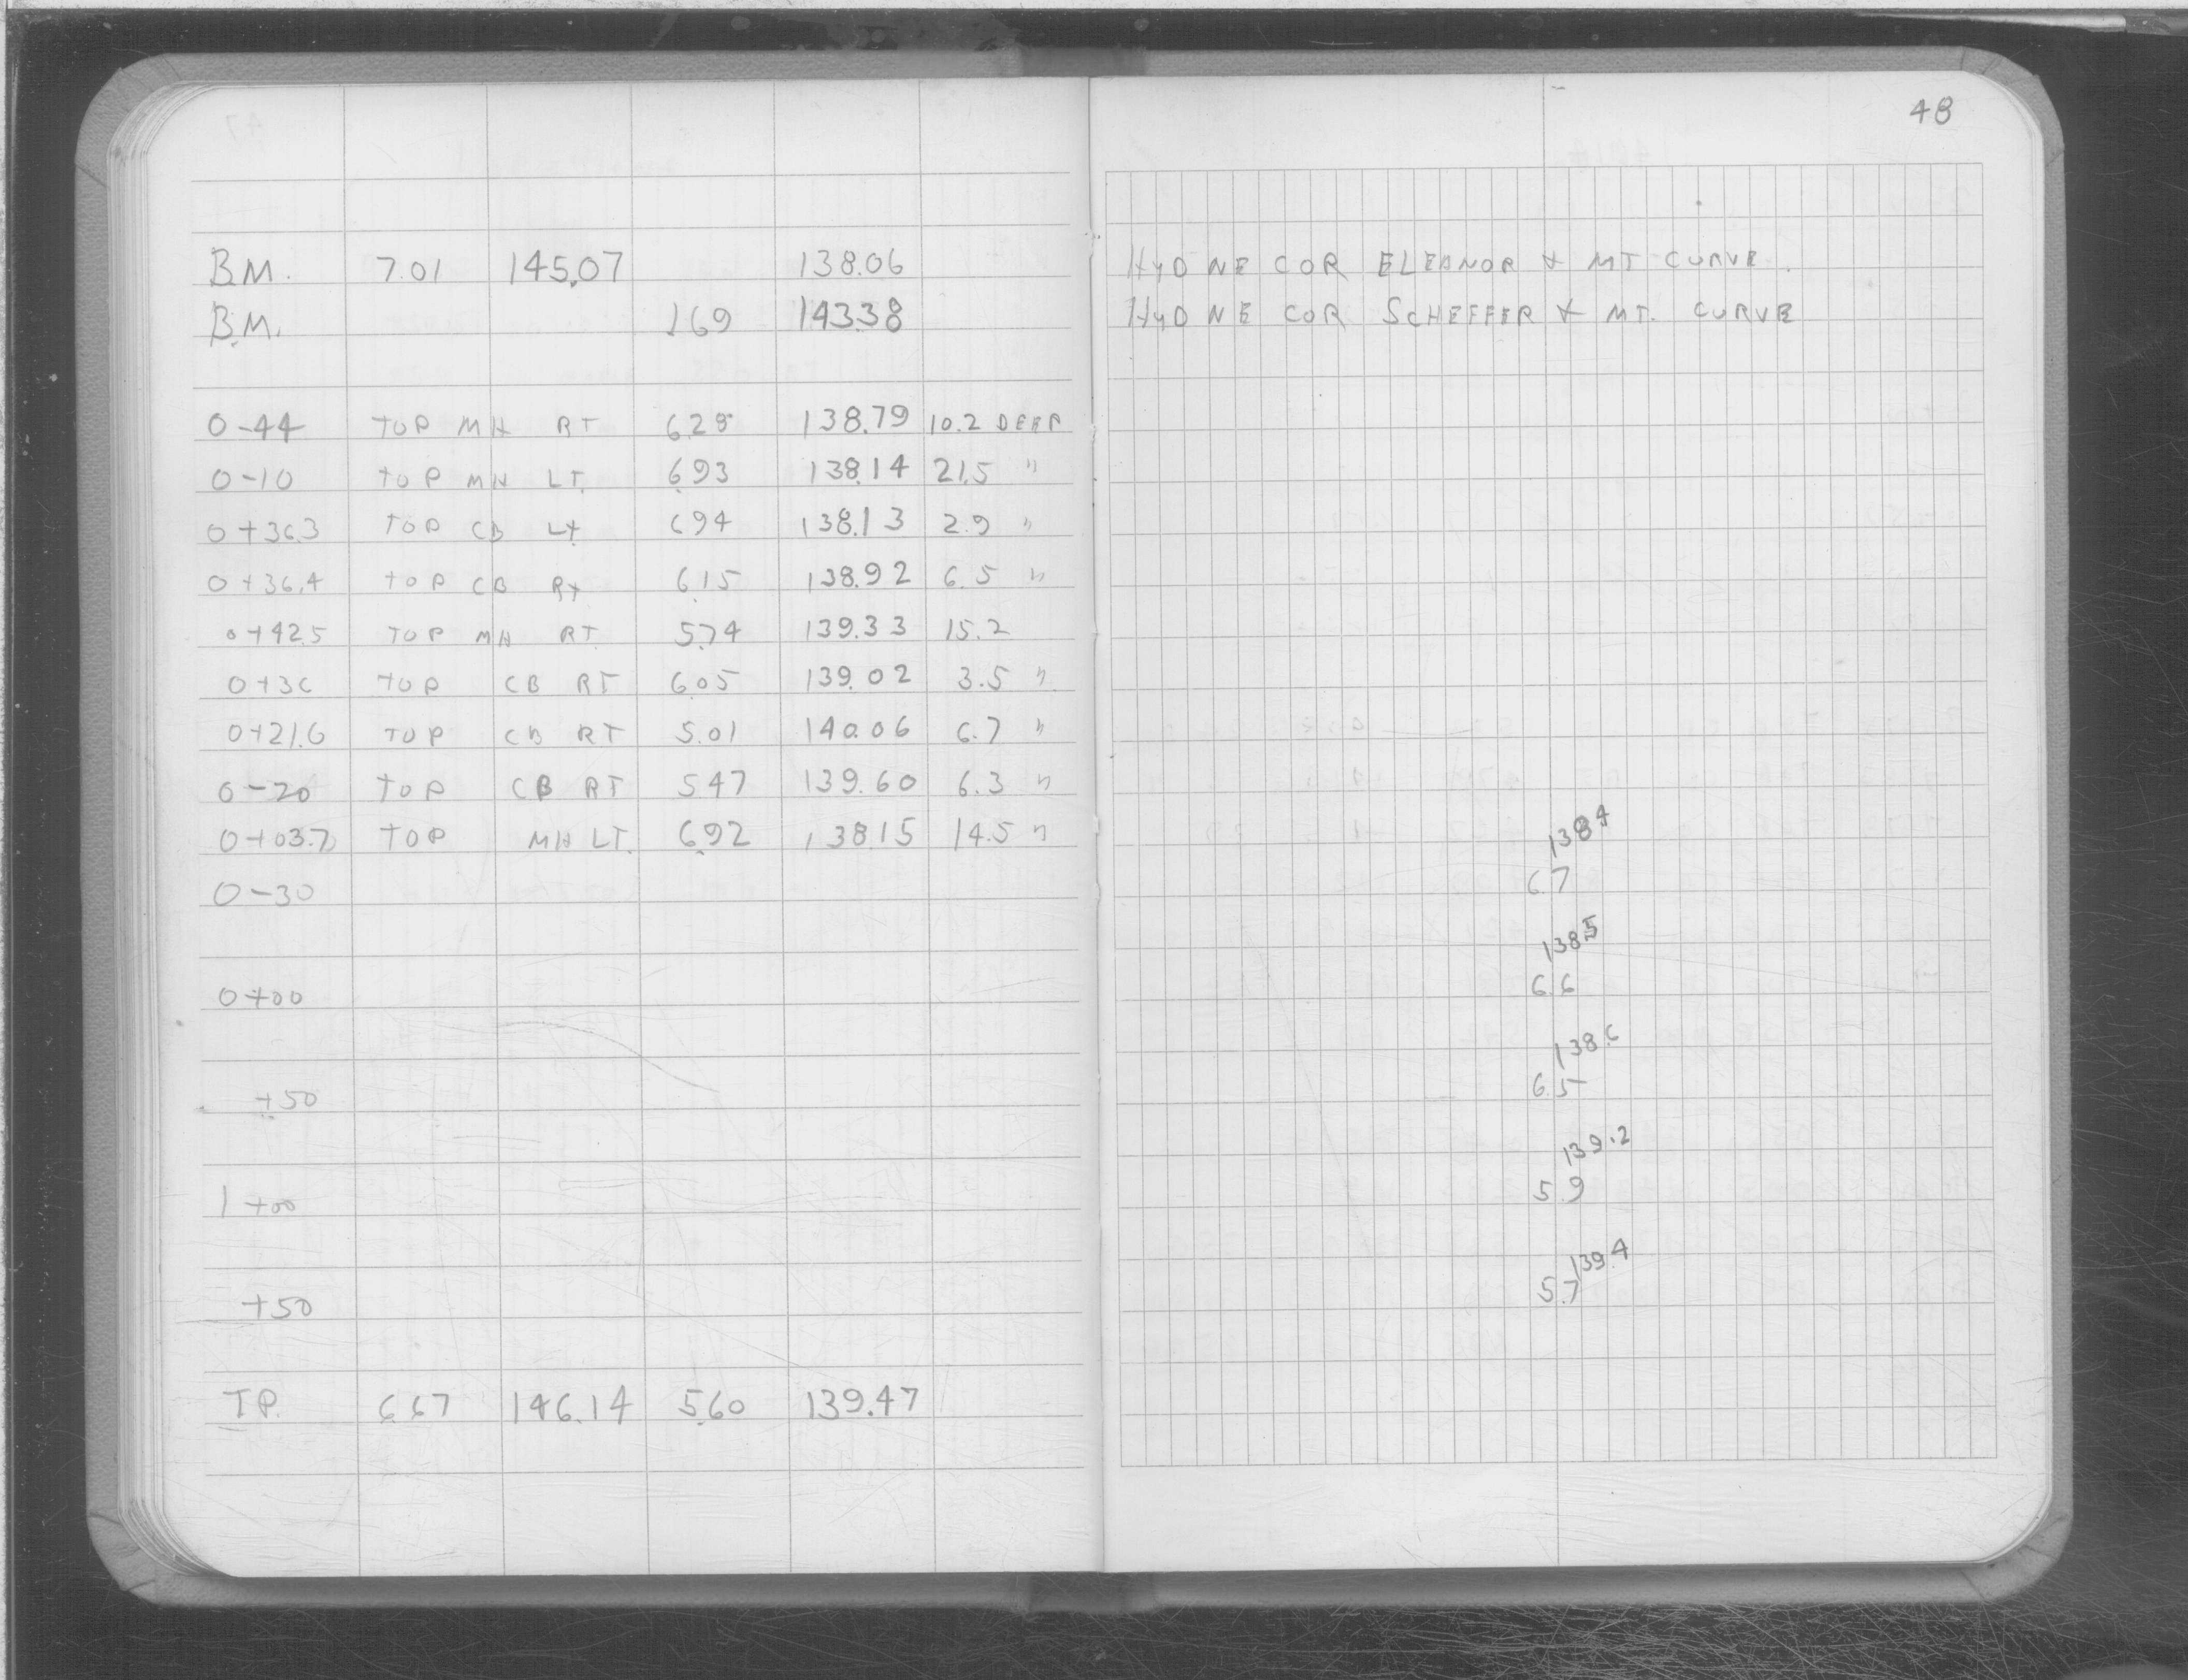 48
B.M. 7.01 145.07 138.06 HYD NE COR ELEANOR & MT CURVE.
B.M. 1.69 143.38 HYD NE COR SCHEFFER & MT. CURVE
0-44 TOP MH RT 6.28 138.79 10.2 DEEP
0-10 TOP MH LT. 6.93 138.14 21.5 "
0+36.3 TOP CB LT 6.94 138.13 2.9 "
0+36.4 TOP CB RT 6.15 138.92 6.5 "
0+42.5 TOP MH RT 5.74 139.33 15.2
0+36 TOP CB RT 6.05 139.02 3.5 "
0+21.6 TOP CB RT 5.01 140.06 6.7 "
0-20 TOP CB RT 5.47 139.60 6.3 "
0+03.7 TOP MH LT. 6.92 138.15 14.5 "
138.4
0-30 6.7
138.5
0+00 6.6
138.6
+50 6.5
139.2
1+00 5.9
139.4
+50 5.7
T.P. 6.67 146.14 5.60 139.47